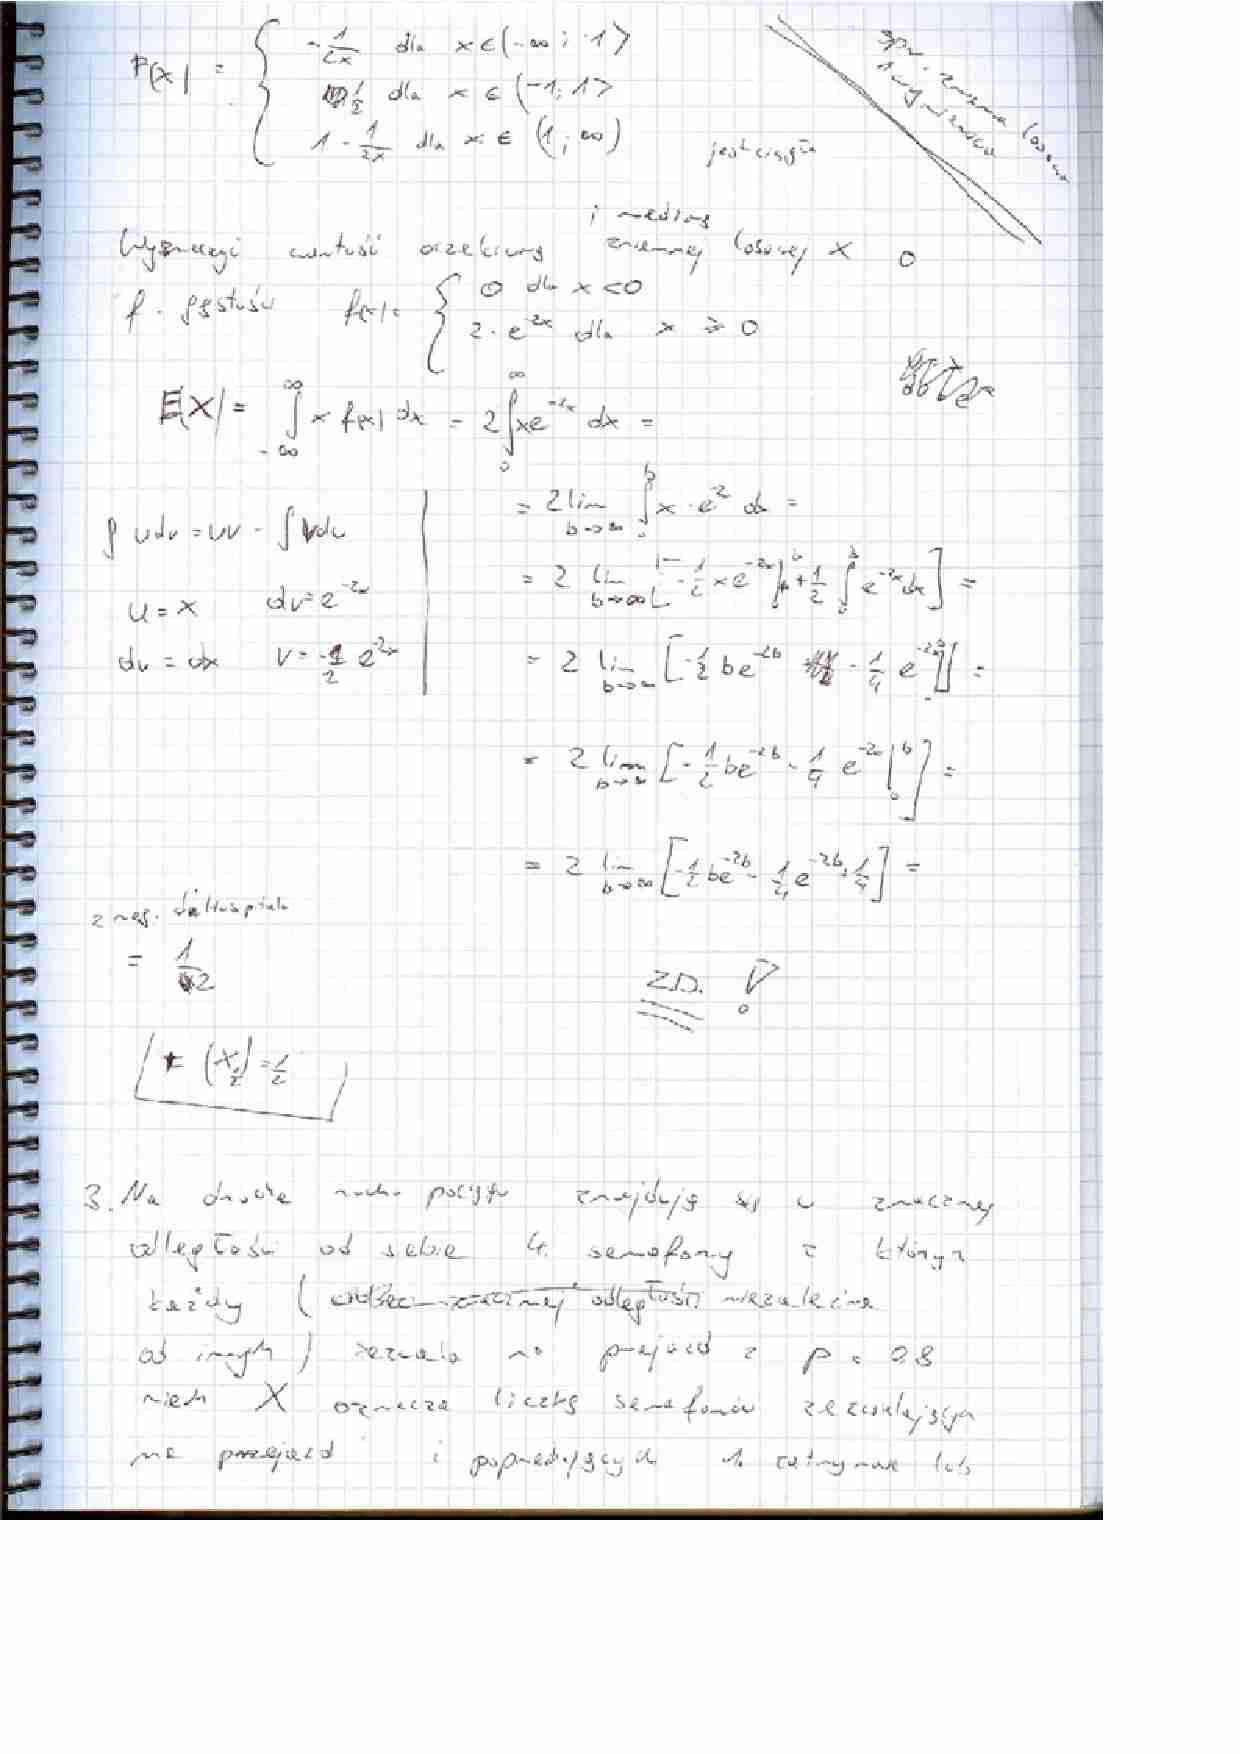 F(x) = { -1/2x dla x ∈ (-∞; -1>
1/2 dla x ∈ (-1; 1>
1 - 1/2x dla x ∈ (1; ∞)
jest ciągła
spr. zmienna losowa
i medianę
Wyznaczyć wartość oczekiwaną zmiennej losowej X o
f. gęstości f(x) = { 0 dla x < 0
2 · e^2x dla x ≥ 0
E(X) = ∫_{-∞}^{∞} x f(x) dx = 2 ∫_0^∞ xe^{-2x} dx =
= 2 lim_{b→∞} ∫_0^b x · e^{-2} dx =
∫ u dv = uv - ∫ v du
= 2 lim_{b→∞} [ -1/2 xe^{-2x} |_0^b + 1/2 ∫_0^b e^{-2x} dx ] =
u = x dv = e^{-2x}
du = dx v = -1/2 e^{-2x}
= 2 lim_{b→∞} [ -1/2 be^{-2b} - 1/4 e^{-2b} ] =
= 2 lim_{b→∞} [ -1/2 be^{-2b} - 1/4 e^{-2x} |_0^b ] =
= 2 lim_{b→∞} [ -1/2 be^{-2b} - 1/4 e^{-2b} + 1/4 ] =
z reg. de Hospitala
= 1/2
ZD. !
(X) = 1/2
3. Na drodze ruchu pociągu znajdują się w znacznej
odległości od siebie 4 semafory z których
każdy ( znacznej odległości niezależnie
od innych ) zezwala na przejazd z p = 0.8
niech X oznacza liczbę semaforów zezwalających
na przejazd i poprzedzających 1. zatrzymanie lub